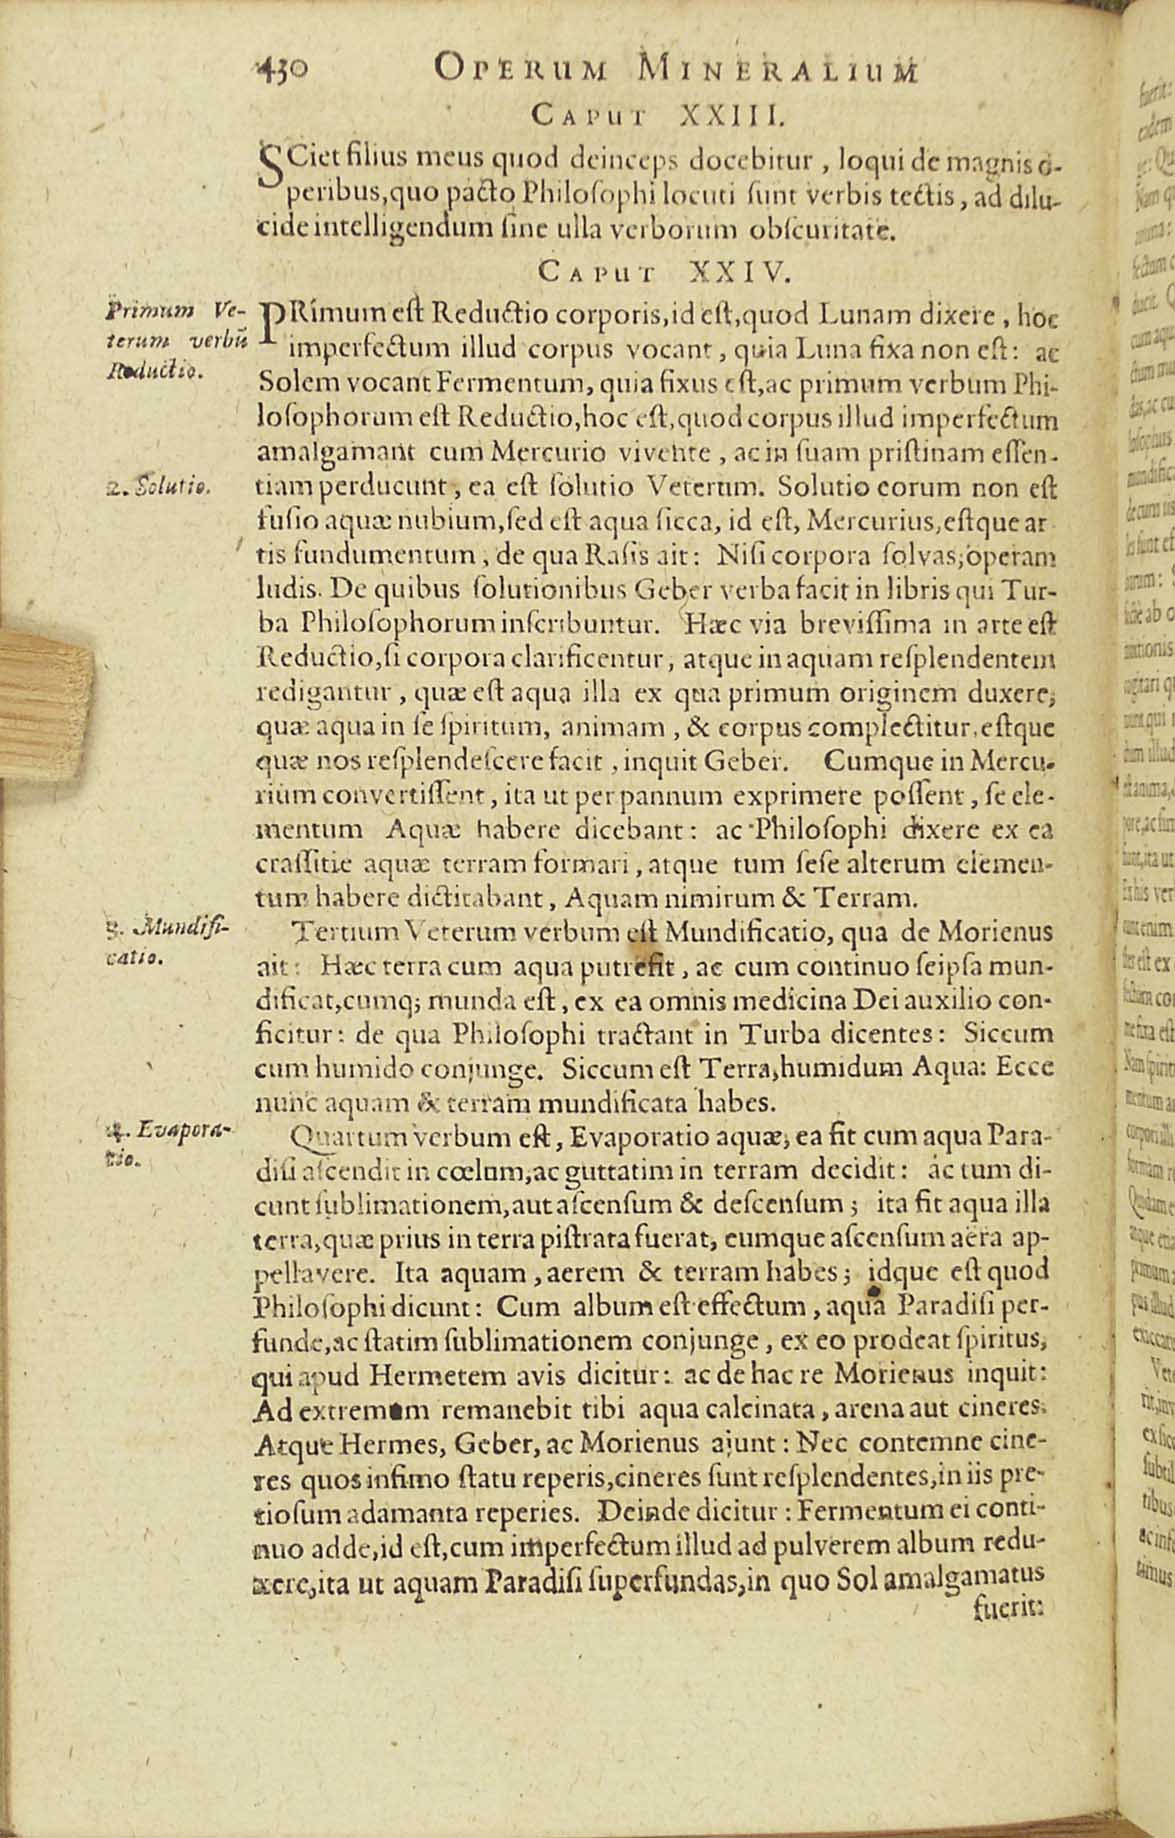 430 OPERUM MINERALIUM
CAPUT XXIII.
SCiet filius meus quod deinceps docebitur, loqui de magnis o-
peribus, quo pacto Philosophi locuti sunt verbis tectis, ad dilu-
cide intelligendum sine ulla verborum obscuritate.
CAPUT XXIV.
Primum Ve-
terum verbũ
Reductio.
PRimum est Reductio corporis, id est, quod Lunam dixere, hoc
imperfectum illud corpus vocant, quia Luna fixa non est: ac
Solem vocant Fermentum, quia fixus est, ac primum verbum Phi-
losophorum est Reductio, hoc est, quod corpus illud imperfectum
amalgamant cum Mercurio vivente, ac in suam pristinam essen-
2. Solutio.
tiam perducunt, ea est solutio Veterum. Solutio eorum non est
fusio aquæ nubium, sed est aqua sicca, id est, Mercurius, estque ar
tis fundumentum, de qua Rasis ait: Nisi corpora solvas, operam
ludis. De quibus solutionibus Geber verba facit in libris qui Tur-
ba Philosophorum inscribuntur. Hæc via brevissima in arte est
Reductio, si corpora clarificentur, atque in aquam resplendentem
redigantur, quæ est aqua illa ex qua primum originem duxere;
quæ aqua in se spiritum, animam, & corpus complectitur, estque
quæ nos resplendescere facit, inquit Geber. Cumque in Mercu-
rium convertissent, ita ut per pannum exprimere possent, se ele-
mentum Aquæ habere dicebant: ac Philosophi dixere ex ea
crassitie aquæ terram formari, atque tum sese alterum elemen-
tum habere dictitabant, Aquam nimirum & Terram.
3. Mundifi-
catio.
Tertium Veterum verbum est Mundificatio, qua de Morienus
ait: Hæc terra cum aqua putrefit, ac cum continuo seipsa mun-
dificat, cumq; munda est, ex ea omnis medicina Dei auxilio con-
ficitur: de qua Philosophi tractant in Turba dicentes: Siccum
cum humido conjunge. Siccum est Terra, humidum Aqua: Ecce
nunc aquam & terram mundificata habes.
4. Evapora-
tio.
Quartum verbum est, Evaporatio aquæ; ea fit cum aqua Para-
disi ascendit in cœlum, ac guttatim in terram decidit: ac tum di-
cunt sublimationem, aut ascensum & descensum; ita fit aqua illa
terra, quæ prius in terra pistrata fuerat, eumque ascensum aëra ap-
pellavere. Ita aquam, aerem & terram habes; idque est quod
Philosophi dicunt: Cum album est effectum, aqua Paradisi per-
funde, ac statim sublimationem conjunge, ex eo prodeat spiritus,
qui apud Hermetem avis dicitur: ac de hac re Morienus inquit:
Ad extremum remanebit tibi aqua calcinata, arena aut cineres.
Atque Hermes, Geber, ac Morienus ajunt: Nec contemne cine-
res quos infimo statu reperis, cineres sunt resplendentes, in iis pre-
tiosum adamanta reperies. Deinde dicitur: Fermentum ei conti-
nuo adde, id est, cum imperfectum illud ad pulverem album redu-
xere, ita ut aquam Paradisi superfundas, in quo Sol amalgamatus
fuerit: